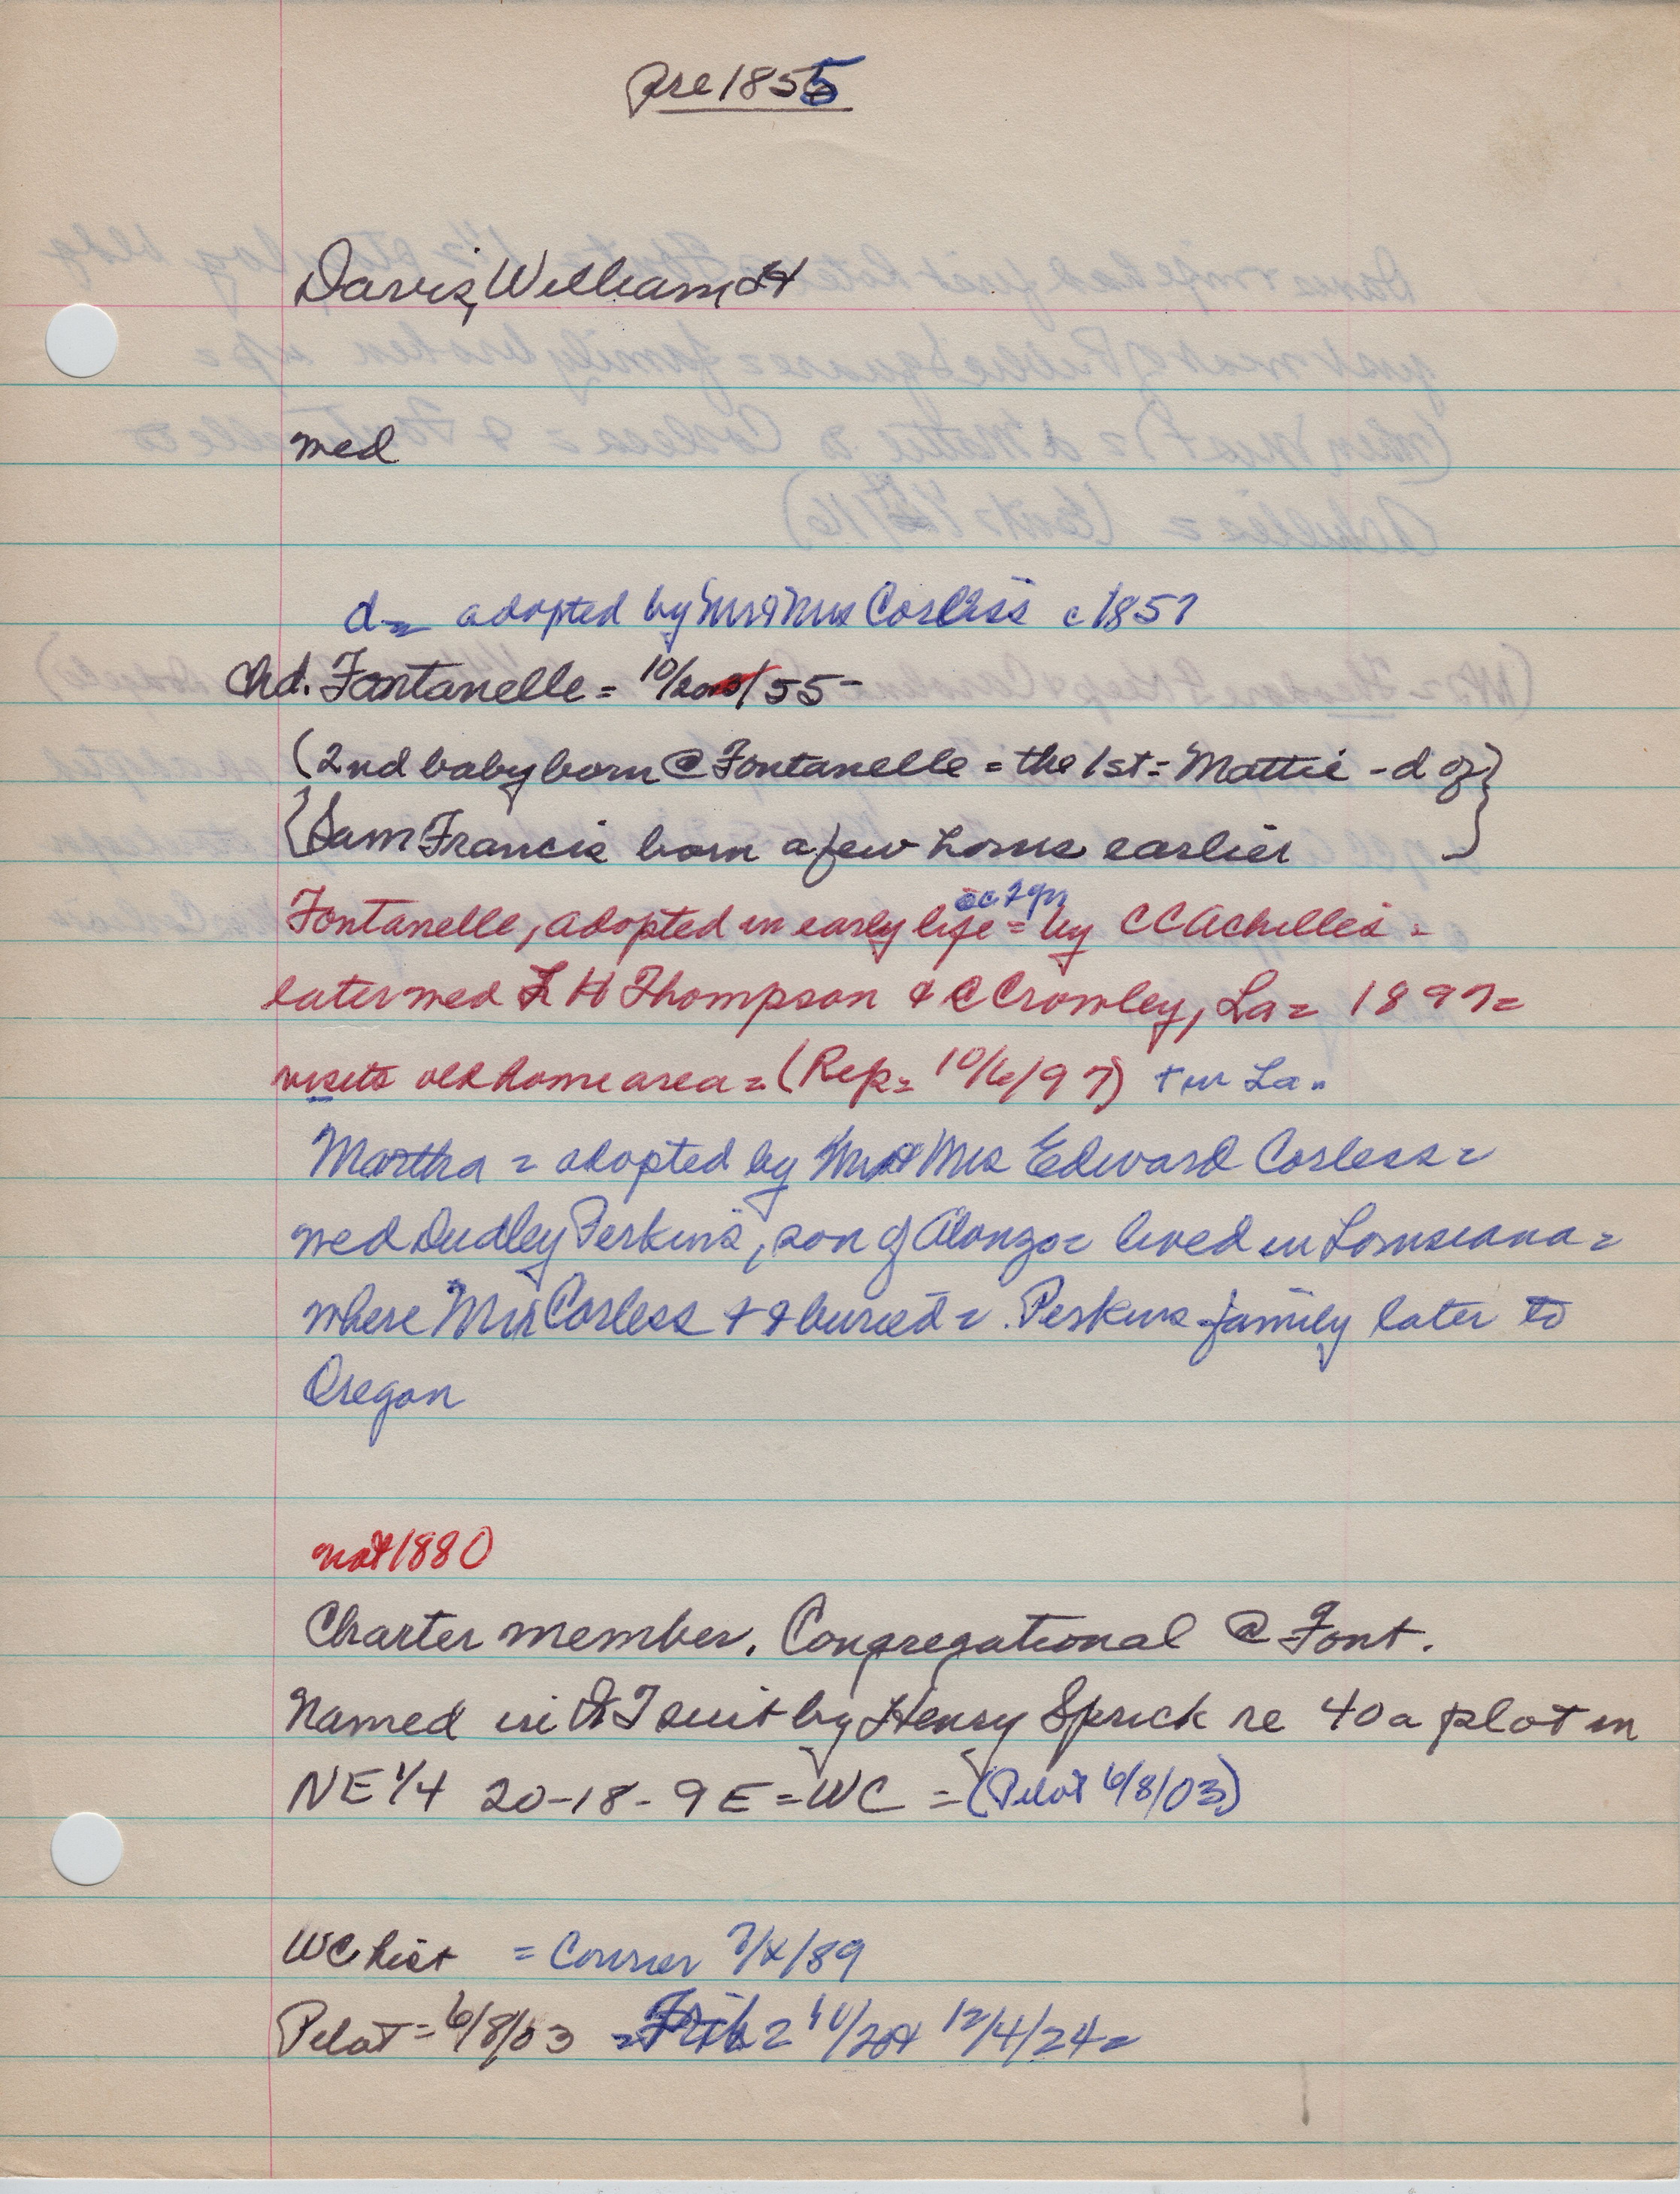 pre 1855
Davis, William H
med
d = adopted by Mr & Mrs Corless c 1857
chd. Fontanelle = 10/20/55 -
(2nd baby born @ Fontanelle = the 1st = Mattie - d of)
{Sam Francis born a few hours earlier}
Fontanelle, adopted in early life = by C C Achilles =
later med L H Thompson & C Crowley, La = 1897 =
visits old home area = (Rep = 10/6/97) + in La =
Martha = adopted by Mr & Mrs Edward Corless =
med Dudley Perkins, son of Alonzo = lived in Louisiana =
where Mrs Corless + & buried = Perkins family later to
Oregon
not 1880
Charter member, Congregational @ Font.
Named in suit by Henry Sprick re 40 a plot in
NE 1/4 20-18-9E = WC = (Pilot 6/8/03)
WC hist = Courier
Pilot = 6/8/03 = 12/4/24 =